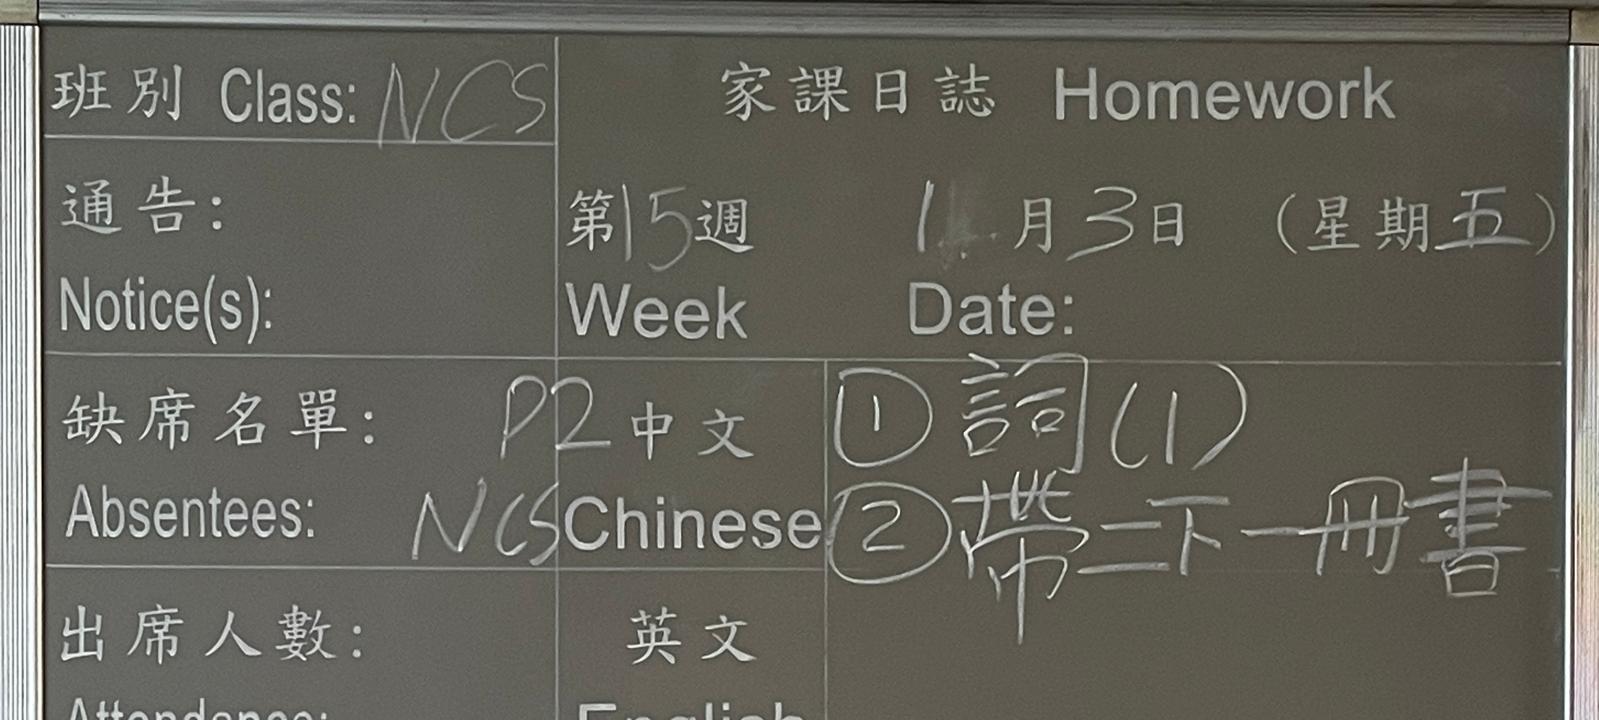 班別 Class: NCS
家課日誌 Homework
通告:
Notice(s):
第15週 1 月3日 (星期五)
Week Date:
缺席名單:
Absentees:
P2 中文
NCS Chinese
① 詞(1)
② 帶二下一冊書
出席人數:
Attendance:
英文
English